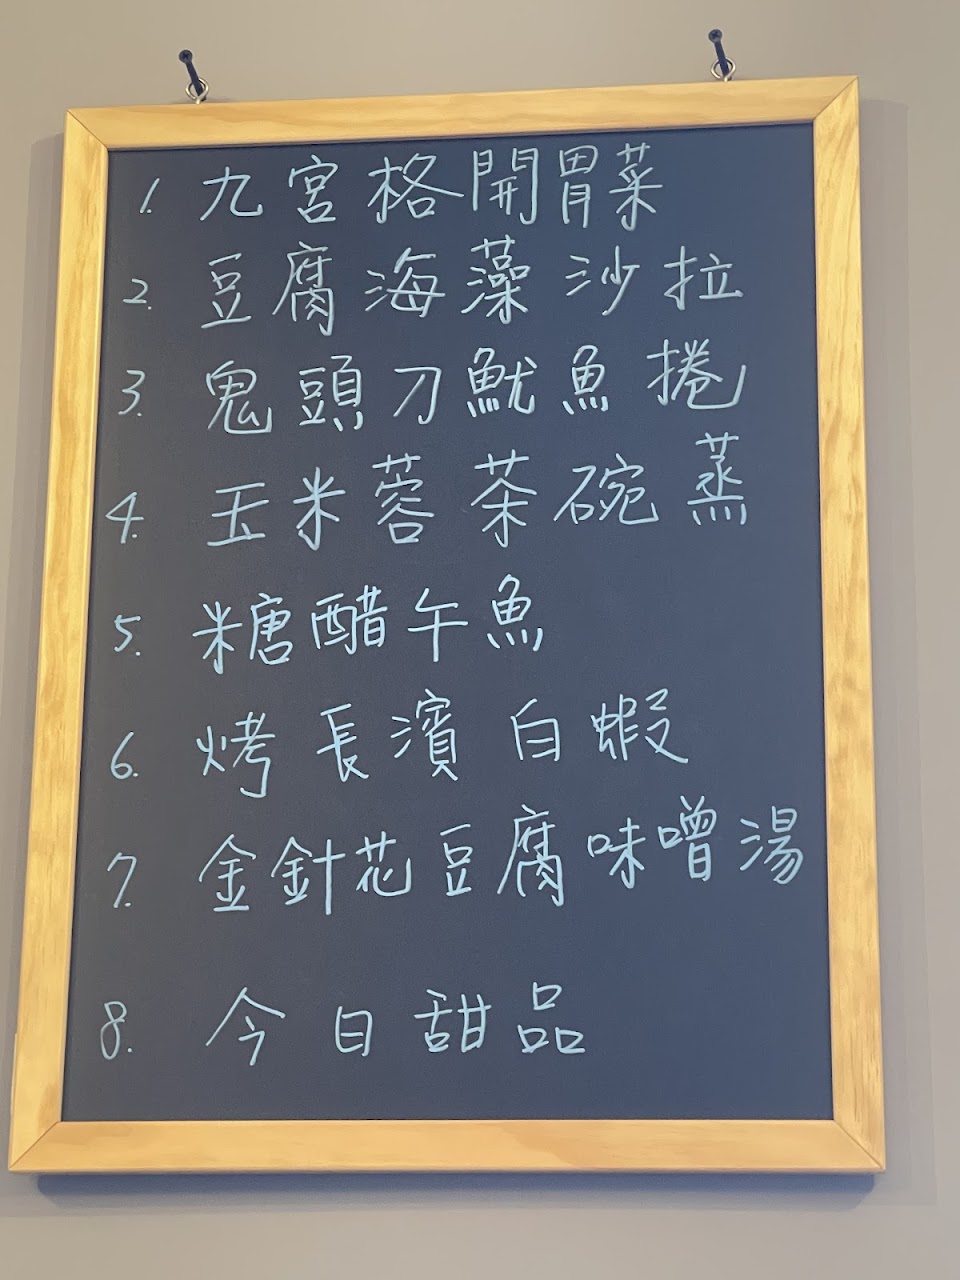 1. 九宮格開胃菜
2. 豆腐海藻沙拉
3. 鬼頭刀魷魚捲
4. 玉米蓉茶碗蒸
5. 糖醋午魚
6. 烤長濱白蝦
7. 金針花豆腐味噌湯
8. 今日甜品